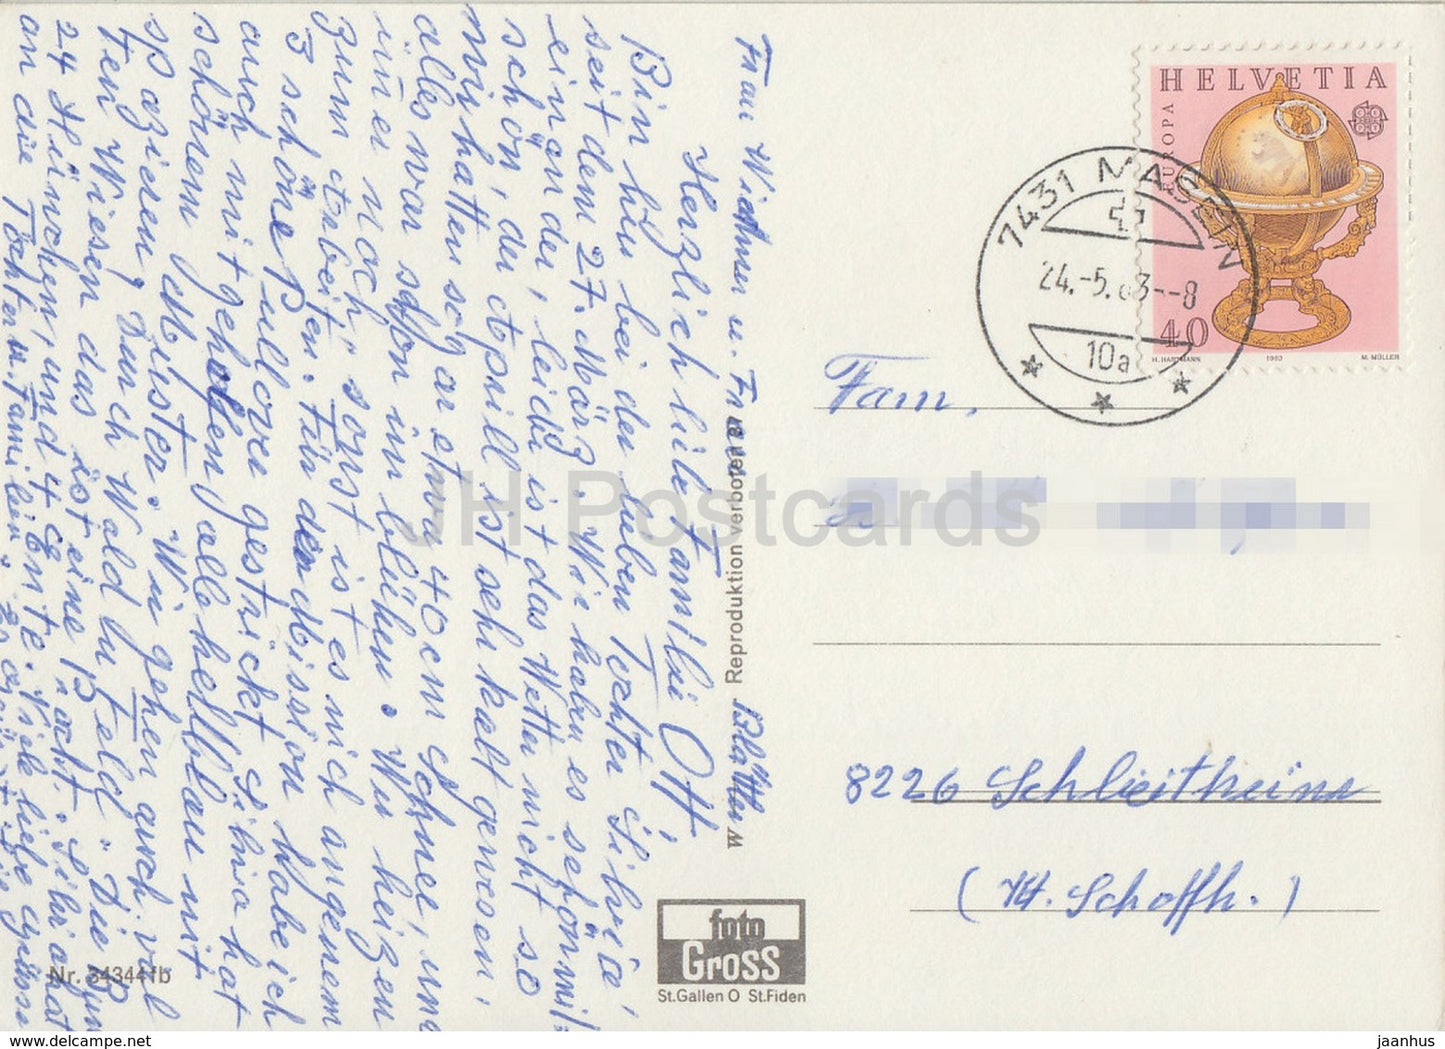 Herzlich liebe Familie Ott,
Bin hier bei der lieben Tochter Silvia,
seit dem 27. März. Wir haben es schön mit-
einander, leider ist das Wetter nicht so
schön, der April ist sehr kalt gewesen,
wir hatten sogar etwa 40 cm Schnee, und
alles war schon im blühen. Wir heizen
imer noch, sonst ist es mich angenem
zum arbeiten. Für den Mission habe ich
3 schöne Pullover gestrickt Silvia hat
auch mitgeholfen, alle hellblau mit
schönem Muster. Wir gehen auch viel
spazieren, durch Wald u Feld. Die Bun-
ten Wiesen das ist eine Pracht. Silvia hat
24 Hünchen, und 4 Ente. Viele liebe Grüsse
an die Töchter m Familien.
Frau Widmer u. Frau
Blatter
Reproduktion verboten
W
Nr. 34344 fb
foto
Gross
St.Gallen O St.Fiden
HELVETIA
EUROPA
40
H. HARTMANN 1983 M. MÜLLER
7431 MASEIN
24.-5.83--8
10a
Fam.
8226 Schleitheim
(Kt. Schaffh.)
JH Postcards
hip-e-market.net
jaanhus